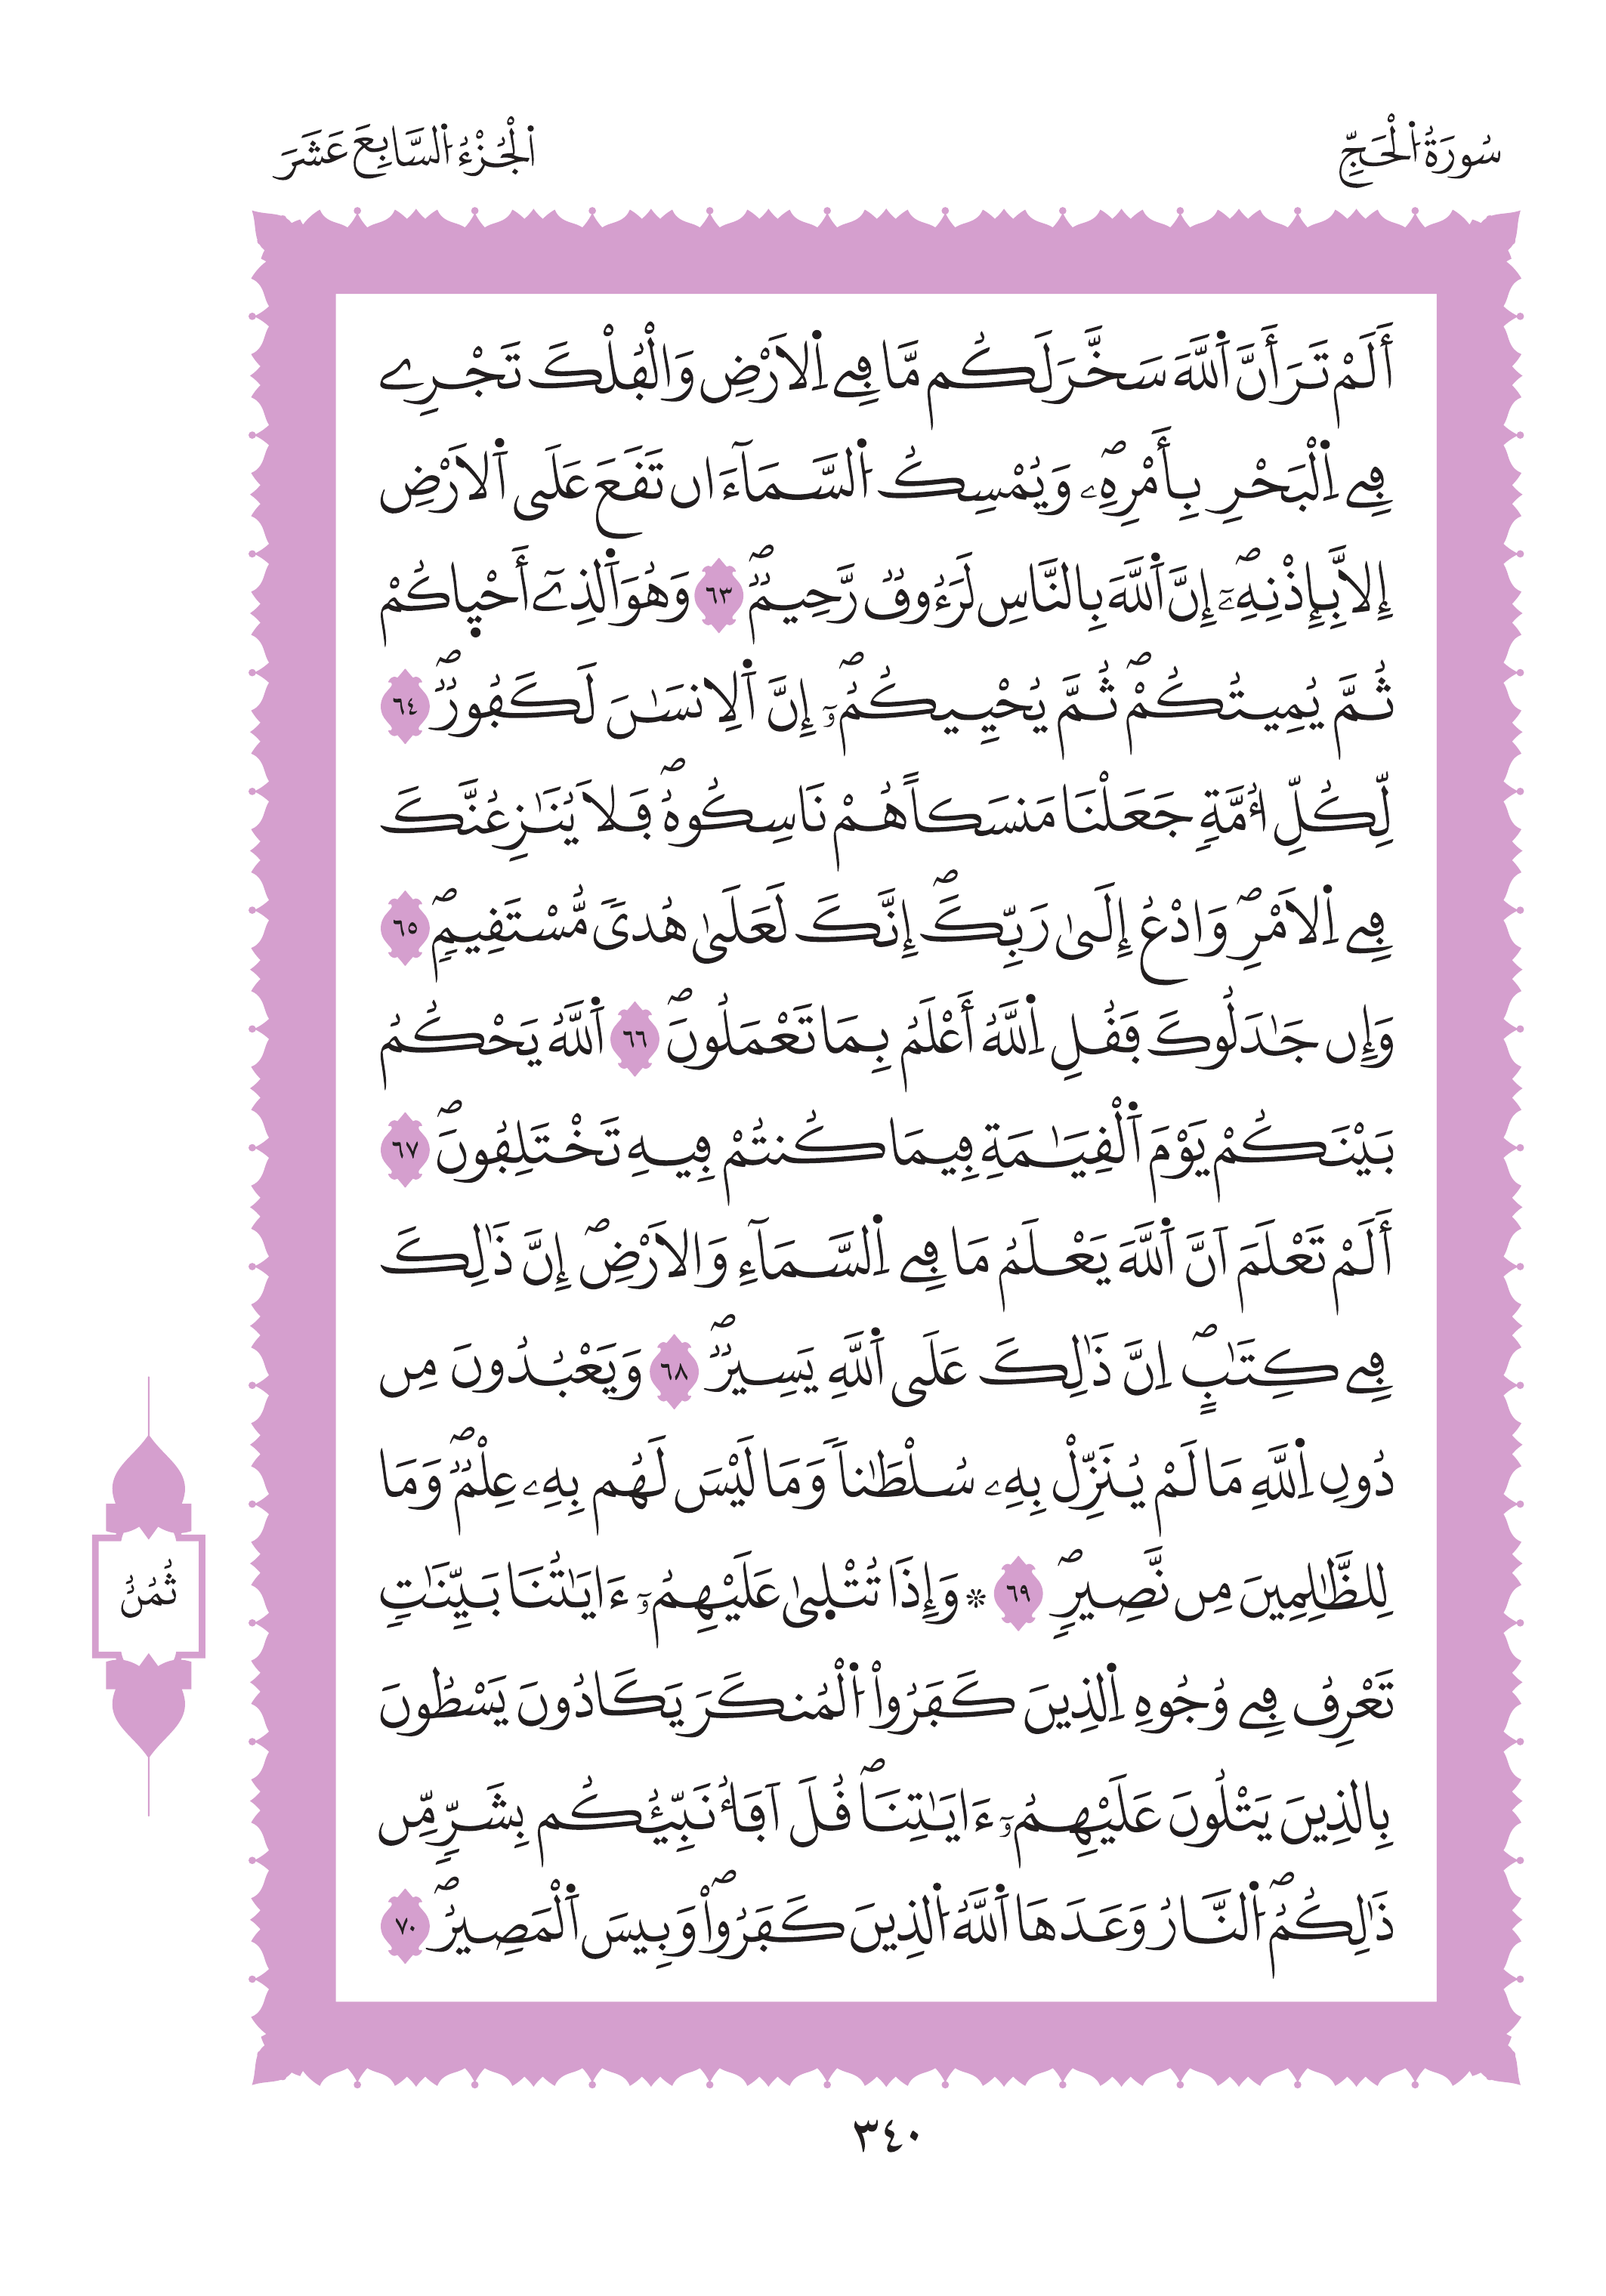 سُورَةُ اُ۬لْحَجِّ
اَ۬لْجُزْءُ اُ۬لسَّابِعَ عَشَرَ
أَلَمْ تَرَ أَنَّ اَ۬للَّهَ سَخَّرَ لَكُم مَّا فِے اِ۬لَارْضِ وَالْفُلْكَ تَجْرِے
فِے اِ۬لْبَحْرِ بِأَمْرِهِۦۖ وَيُمْسِكُ اُ۬لسَّمَآءَ ان تَقَعَ عَلَى اَ۬لَارْضِ
إِلَّا بِإِذْنِهِۦٓۖ إِنَّ اَ۬للَّهَ بِالنَّاسِ لَرَءُوفٞ رَّحِيمٞۖ ٦٣ وَهُوَ اَ۬لذِےٓ أَحْي۪اكُمْ
ثُمَّ يُمِيتُكُمْۖ ثُمَّ يُحْيِيكُمُۥٓۖ إِنَّ اَ۬لِانسَٰنَ لَكَفُورٞۖ ٦٤
لِّكُلِّ أُمَّةٖ جَعَلْنَا مَنسَكاً هُمْ نَاسِكُوهُۖ فَلَا يُنَٰزِعُنَّكَ
فِے اِ۬لَامْرِۖ وَادْعُ إِلَىٰ رَبِّكَۖ إِنَّكَ لَعَلَىٰ هُدىٗ مُّسْتَقِيمٖۖ ٦٥
وَإِن جَٰدَلُوكَ فَقُلِ اِ۬للَّهُ أَعْلَمُ بِمَا تَعْمَلُونَۖ ٦٦ اَ۬للَّهُ يَحْكُمُ
بَيْنَكُمْ يَوْمَ اَ۬لْقِيَٰمَةِ فِيمَا كُنتُمْ فِيهِ تَخْتَلِفُونَۖ ٦٧
أَلَمْ تَعْلَمَ اَنَّ اَ۬للَّهَ يَعْلَمُ مَا فِے اِ۬لسَّمَآءِ وَالَارْضِۖ إِنَّ ذَٰلِكَ
فِے كِتَٰبٍۖ اِنَّ ذَٰلِكَ عَلَى اَ۬للَّهِ يَسِيرٞۖ ٦٨ وَيَعْبُدُونَ مِن
دُونِ اِ۬للَّهِ مَا لَمْ يُنَزِّلْ بِهِۦ سُلْطَٰناٗ وَمَا لَيْسَ لَهُم بِهِۦ عِلْمٞۖ وَمَا
لِلظَّٰلِمِينَ مِن نَّصِيرٖۖ ٦٩ ۞ وَإِذَا تُتْل۪ىٰ عَلَيْهِمُۥٓ ءَايَٰتُنَا بَيِّنَٰتٖ
تَعْرِفُ فِے وُجُوهِ اِ۬لذِينَ كَفَرُواْ اُ۬لْمُنكَرَ يَكَادُونَ يَسْطُونَ
بِالذِينَ يَتْلُونَ عَلَيْهِمُۥٓ ءَايَٰتِنَاۖ قُلَ اَفَأُنَبِّئُكُم بِشَرّٖ مِّن
ذَٰلِكُمُۖ اُ۬لنَّارُ وَعَدَهَا اَ۬للَّهُ اُ۬لذِينَ كَفَرُواْۖ وَبِيسَ اَ۬لْمَصِيرُۖ ٧٠
ثُمُنُ
٣٤٠